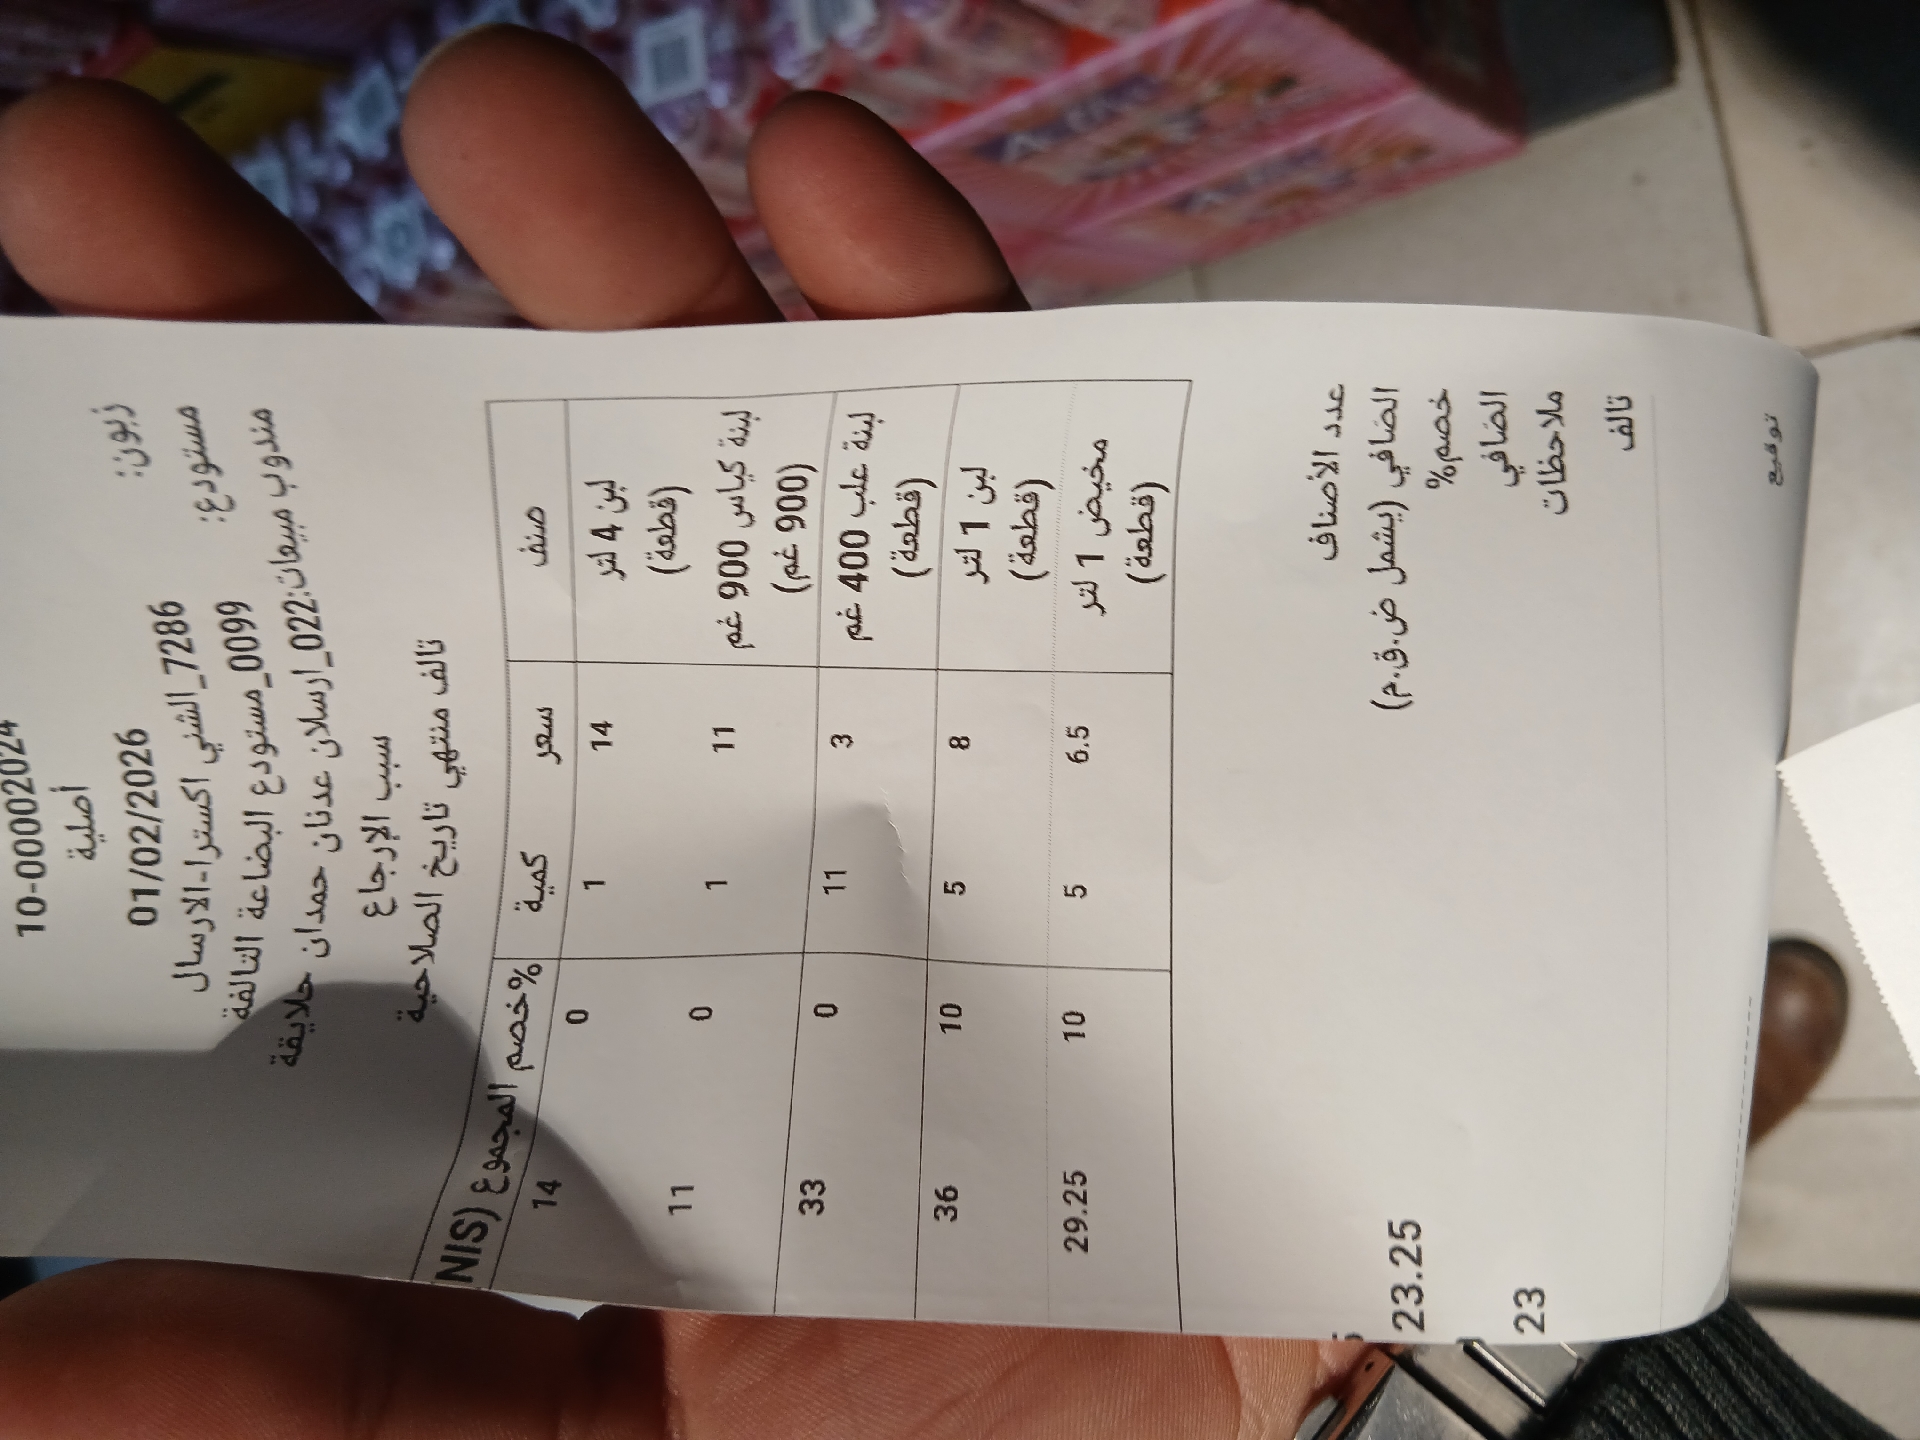 10-00002024
أصلية
01/02/2026
زبون: 7286_الشني اكسترا-الارسال
مستودع: 0099_مستودع البضاعة التالفة
مندوب مبيعات:022_ارسلان عدنان حمدان حلايقة
سبب الإرجاع
تالف منتهي تاريخ الصلاحية
صنف سعر كمية خصم% المجموع (NIS
لبن 4 لتر 14 1 0 14
(قطعة)
لبنة كياس 900 غم 11 1 0 11
(900 غم)
لبنة علب 400 غم 3 11 0 33
(قطعة)
لبن 1 لتر 8 5 10 36
(قطعة)
مخيض 1 لتر 6.5 5 10 29.25
(قطعة)
عدد الأصناف
الصافي (يشمل ض.ق.م) 23.25
خصم%
الصافي 23
ملاحظات
تالف
توقيع